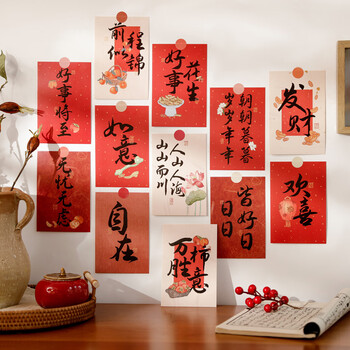 前程
似錦
好事
花生
发财
好事将至
如意
朝朝暮暮
岁岁年年
无忧无虑
自在
人山人海
山山而川
日日
皆好日
欢喜
万柿
胜意